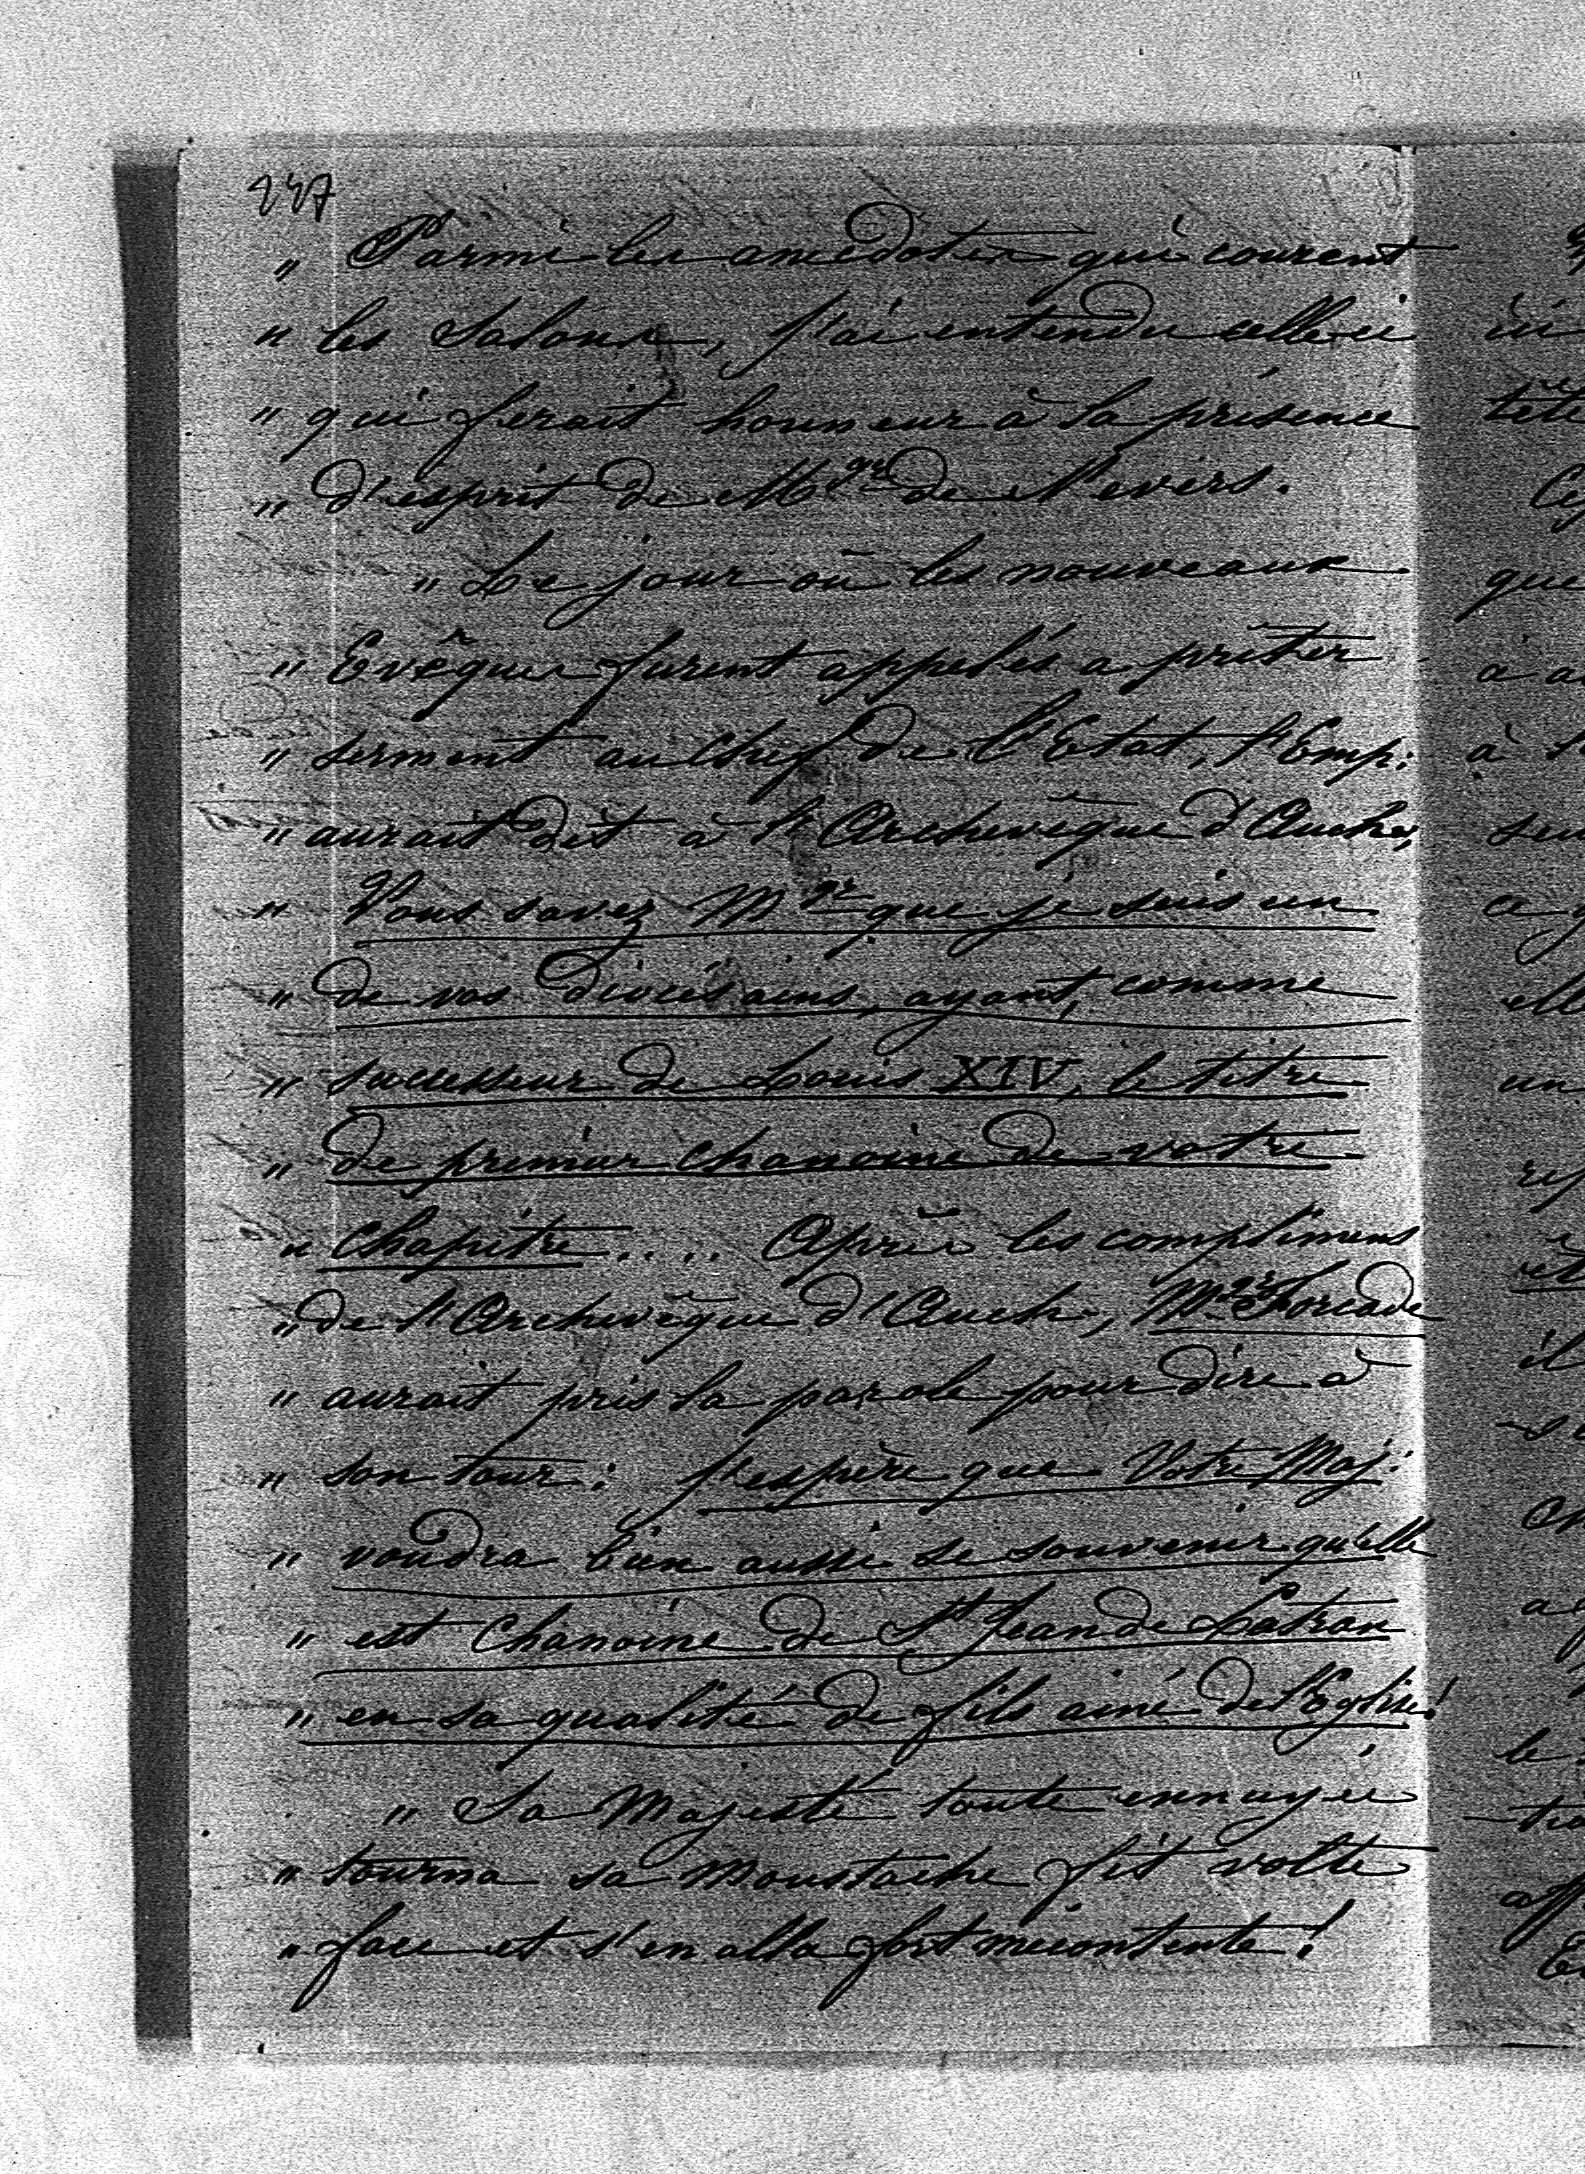 247
" Parmi les anecdotes qui courent
" les Salons, j'ai entendu celle ci
" qui ferait honneur à la présence
" d'esprit de Mgr de Nevers.
" Le jour où les nouveaux
" Evêques furent appelés a prêter
" serment au Chef de l'Etat, l'Emp:
" aurait dit à l'Archevêque d'Auch,
" Vous savez Mgr que je suis un
" de vos diocésains, ayant, comme
" successeur de Louis XIV, le titre
" de premier chanoine de votre
" Chapitre.... Après les complimens
" de l'Archevêque d'Auch, Mgr Forcade
" aurait pris la parole pour dire à
" son tour: J'espère que Votre Maj:
" voudra bien aussi se souvenir qu'elle
" est Chanoine de St Jean de Latran
" en sa qualité de fils ainé de l'Eglise!
" Sa Majesté toute ennuyée
" tourna sa Moustache fit volte
" face et s'en alla fort mécontente!